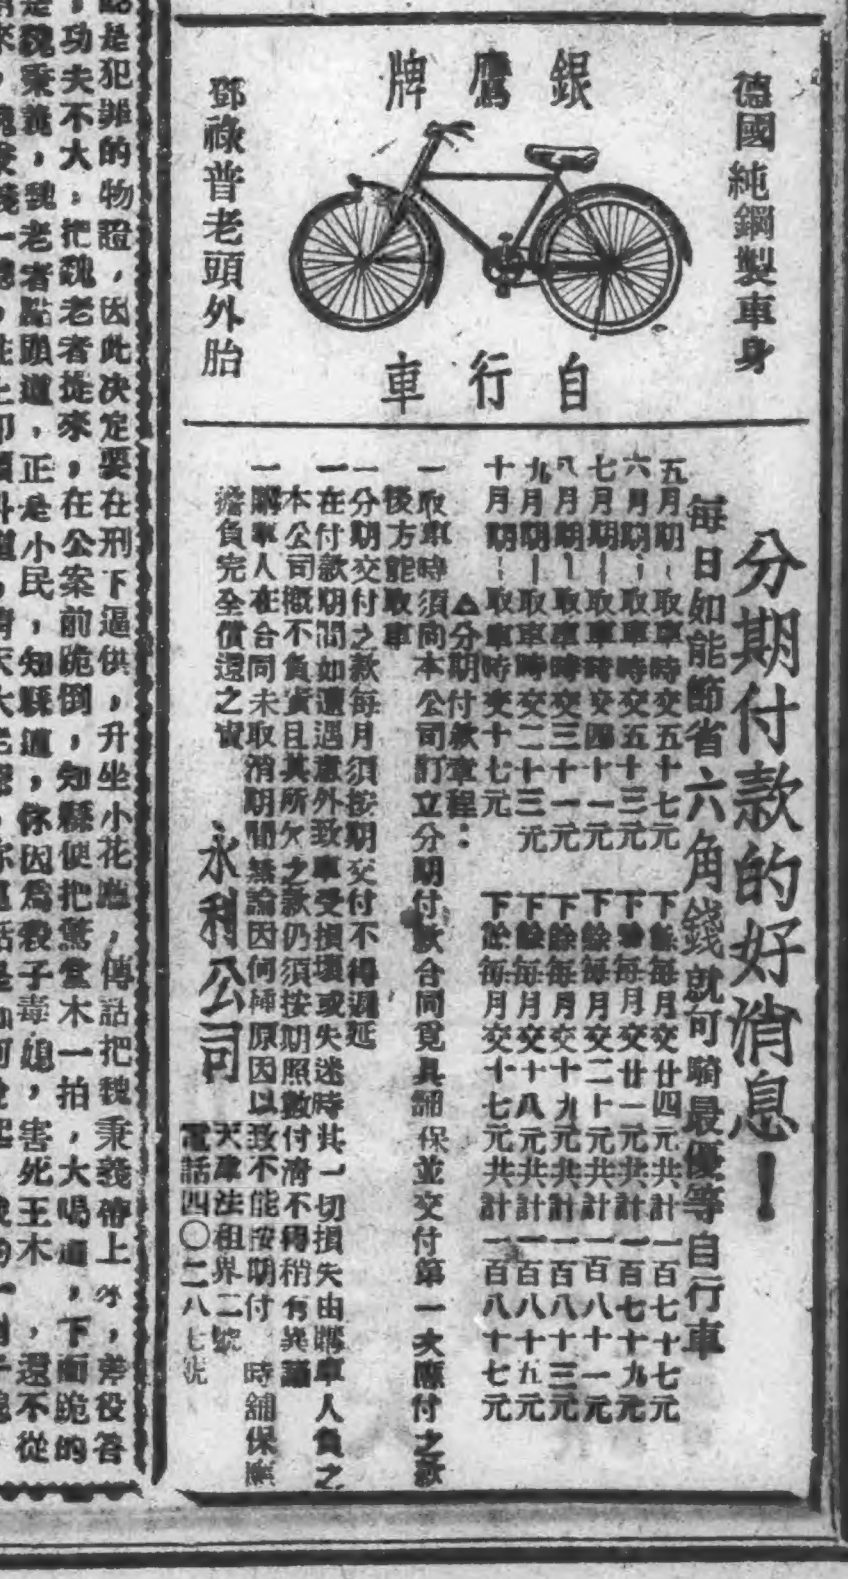 德國純鋼製車身
銀鷹牌
自行車
鄧祿普老頭外胎
分期付款的好消息！
每日如能節省六角錢就可騎最優等自行車
五月期—取車時交五十七元 下餘每月交廿四元共計一百七十七元
六月期—取車時交五十三元 下餘每月交廿一元共計一百七十九元
七月期—取車時交四十一元 下餘每月交二十元共計一百八十一元
八月期—取車時交三十一元 下餘每月交十九元共計一百八十三元
九月期—取車時交二十三元 下餘每月交十八元共計一百八十五元
十月期—取車時交十七元 下餘每月交十七元共計一百八十七元
△分期付款章程：
一取車時須向本公司訂立分期付款合同覓具舖保並交付第一次應付之款
後方能取車
一分期交付之款每月須按期交付不得遲延
一在付款期間如遭遇意外致車受損壞或失迷時其一切損失由購車人負之
本公司概不負責且其所欠之款仍須按期照數付清不得稍有異議
一購車人在合同未取消期間無論因何種原因以致不能按期付 時舖保應
擔負完全償還之責
永利公司
天津法租界二號
電話四〇二八七號
是犯罪的物證，因此决定要在刑下逼供，升坐小花廳，傳話把魏秉義帶上來，差役答
，功夫不大，把魏老者提來，在公案前跪倒，知縣便把驚堂木一拍，大喝道，下面跪的
是魏秉義，魏老者點頭道，正是小民，知縣道，你因爲發子毒媳，害死王木 ，還不從